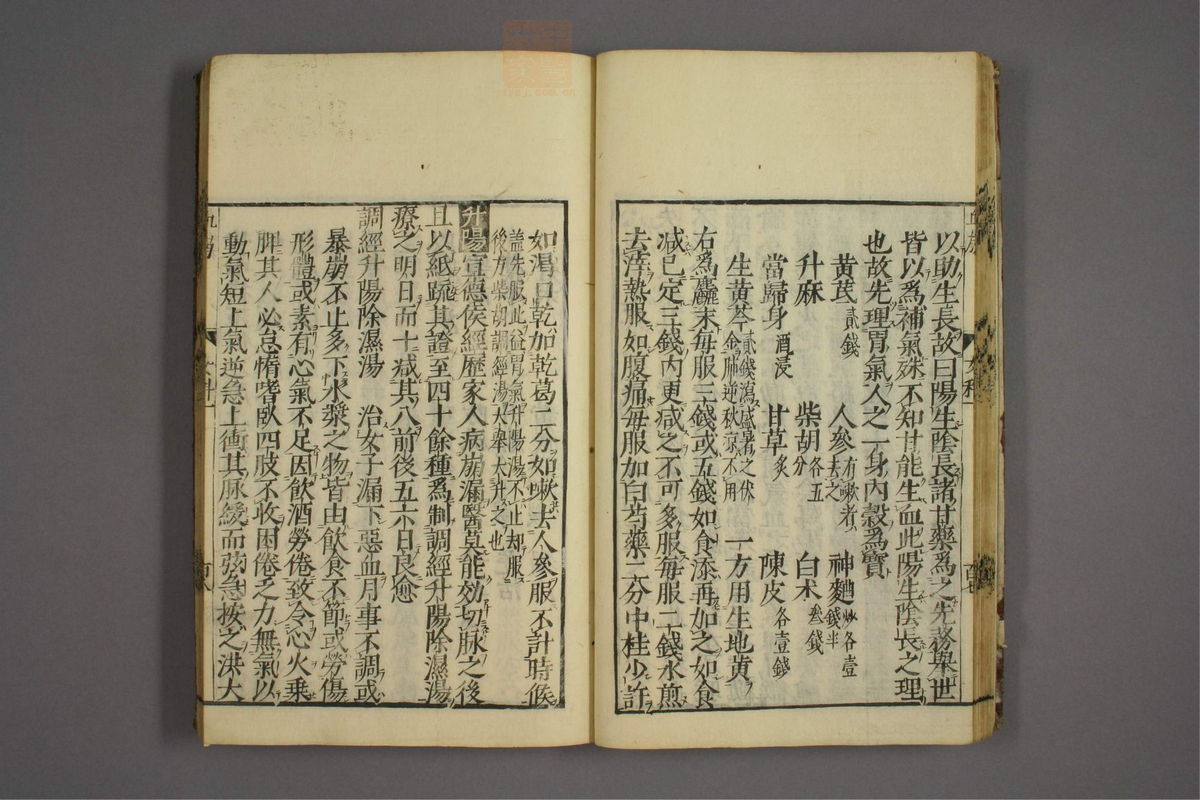 以助生長故曰陽生陰長諸甘藥爲之先務舉世
皆以爲補氣殊不知甘能生血此陽生陰長之理
也故先理胃氣人之一身內穀爲寶
黃芪 貳錢 人參 有嗽者去之 神麯 炒各壹錢半
升麻 柴胡 各五分 白术 叁錢
當歸身 酒浸 甘草 炙 陳皮 各壹錢
生黃芩 貳錢瀉盛暑之伏金肺逆秋凉不用 一方用生地黃
右爲麤末每服三錢或五錢如食添再加之如食
減已定三錢內更減之不可多服每服二錢水煎
去滓熱服如腹痛每服加白芍藥二分中桂少許
如渴口乾加乾葛二分如嗽去人參服不計時候
蓋先服此益胃氣升陽湯不止却服
後方柴胡調經湯大舉大升之也
升陽 宣德侯經歷家人病崩漏醫莫能効切脉之後
且以紙䟽其證至四十餘種爲制調經升陽除濕湯
療之明日而十減其八前後五六日良愈
調經升陽除濕湯 治女子漏下惡血月事不調或
暴崩不止多下水漿之物皆由飲食不節或勞傷
形體或素有心氣不足因飲酒勞倦致令心火乗
脾其人必怠惰嗜臥四肢不收困倦乏力無氣以
動氣短上氣逆急上衝其脉緩而弦急按之洪大
女科一
百八